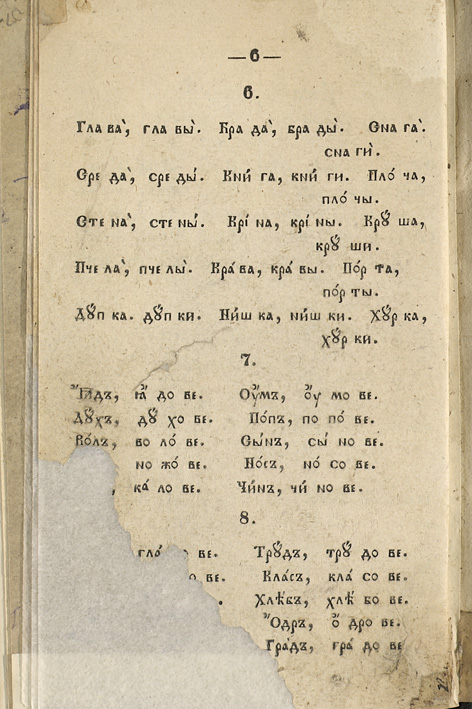 — 6 —
6.
Гла ва̀, гла вы̀. Бра да̀, бра ды̀. Сна га̀.
сна гѝ.
Сре да̀, сре ды̀. Кни́ га, кни́ ги. Пло́ ча,
пло́ чы.
Сте на̀, сте ны̀. Крі́ на, крі́ ны. Крꙋ́ ша,
крꙋ́ ши.
Пче ла̀, пче лы̀. Кра́ ва, кра́ вы. По́р та,
по́р ты.
Дꙋ́п ка. дꙋ́п ки. Ни́ш ка, ни́ш ки. Хꙋ́р ка,
хꙋ́р ки.
7.
Ꙗ҆́дъ, ꙗ҆́ до ве. Оу҆́мъ, оу҆́ мо ве.
Дꙋ́хъ, дꙋ́ хо ве. По́пъ, по по́ ве.
Во́лъ, во ло́ ве. Сы́нъ, сы́ но ве.
но жо́ ве. Но́съ, но́ со ве.
, ка́ ло ве. Чи́нъ, чи́ но ве.
8.
гла́ о ве. Трꙋ́дъ, трꙋ́ до ве.
о ве. Кла́съ, кла́ со ве.
. Хлѣ́бъ, хлѣ́ бо ве.
О҆́дръ, о҆́ дро ве.
Гра́дъ, гра́ до ве